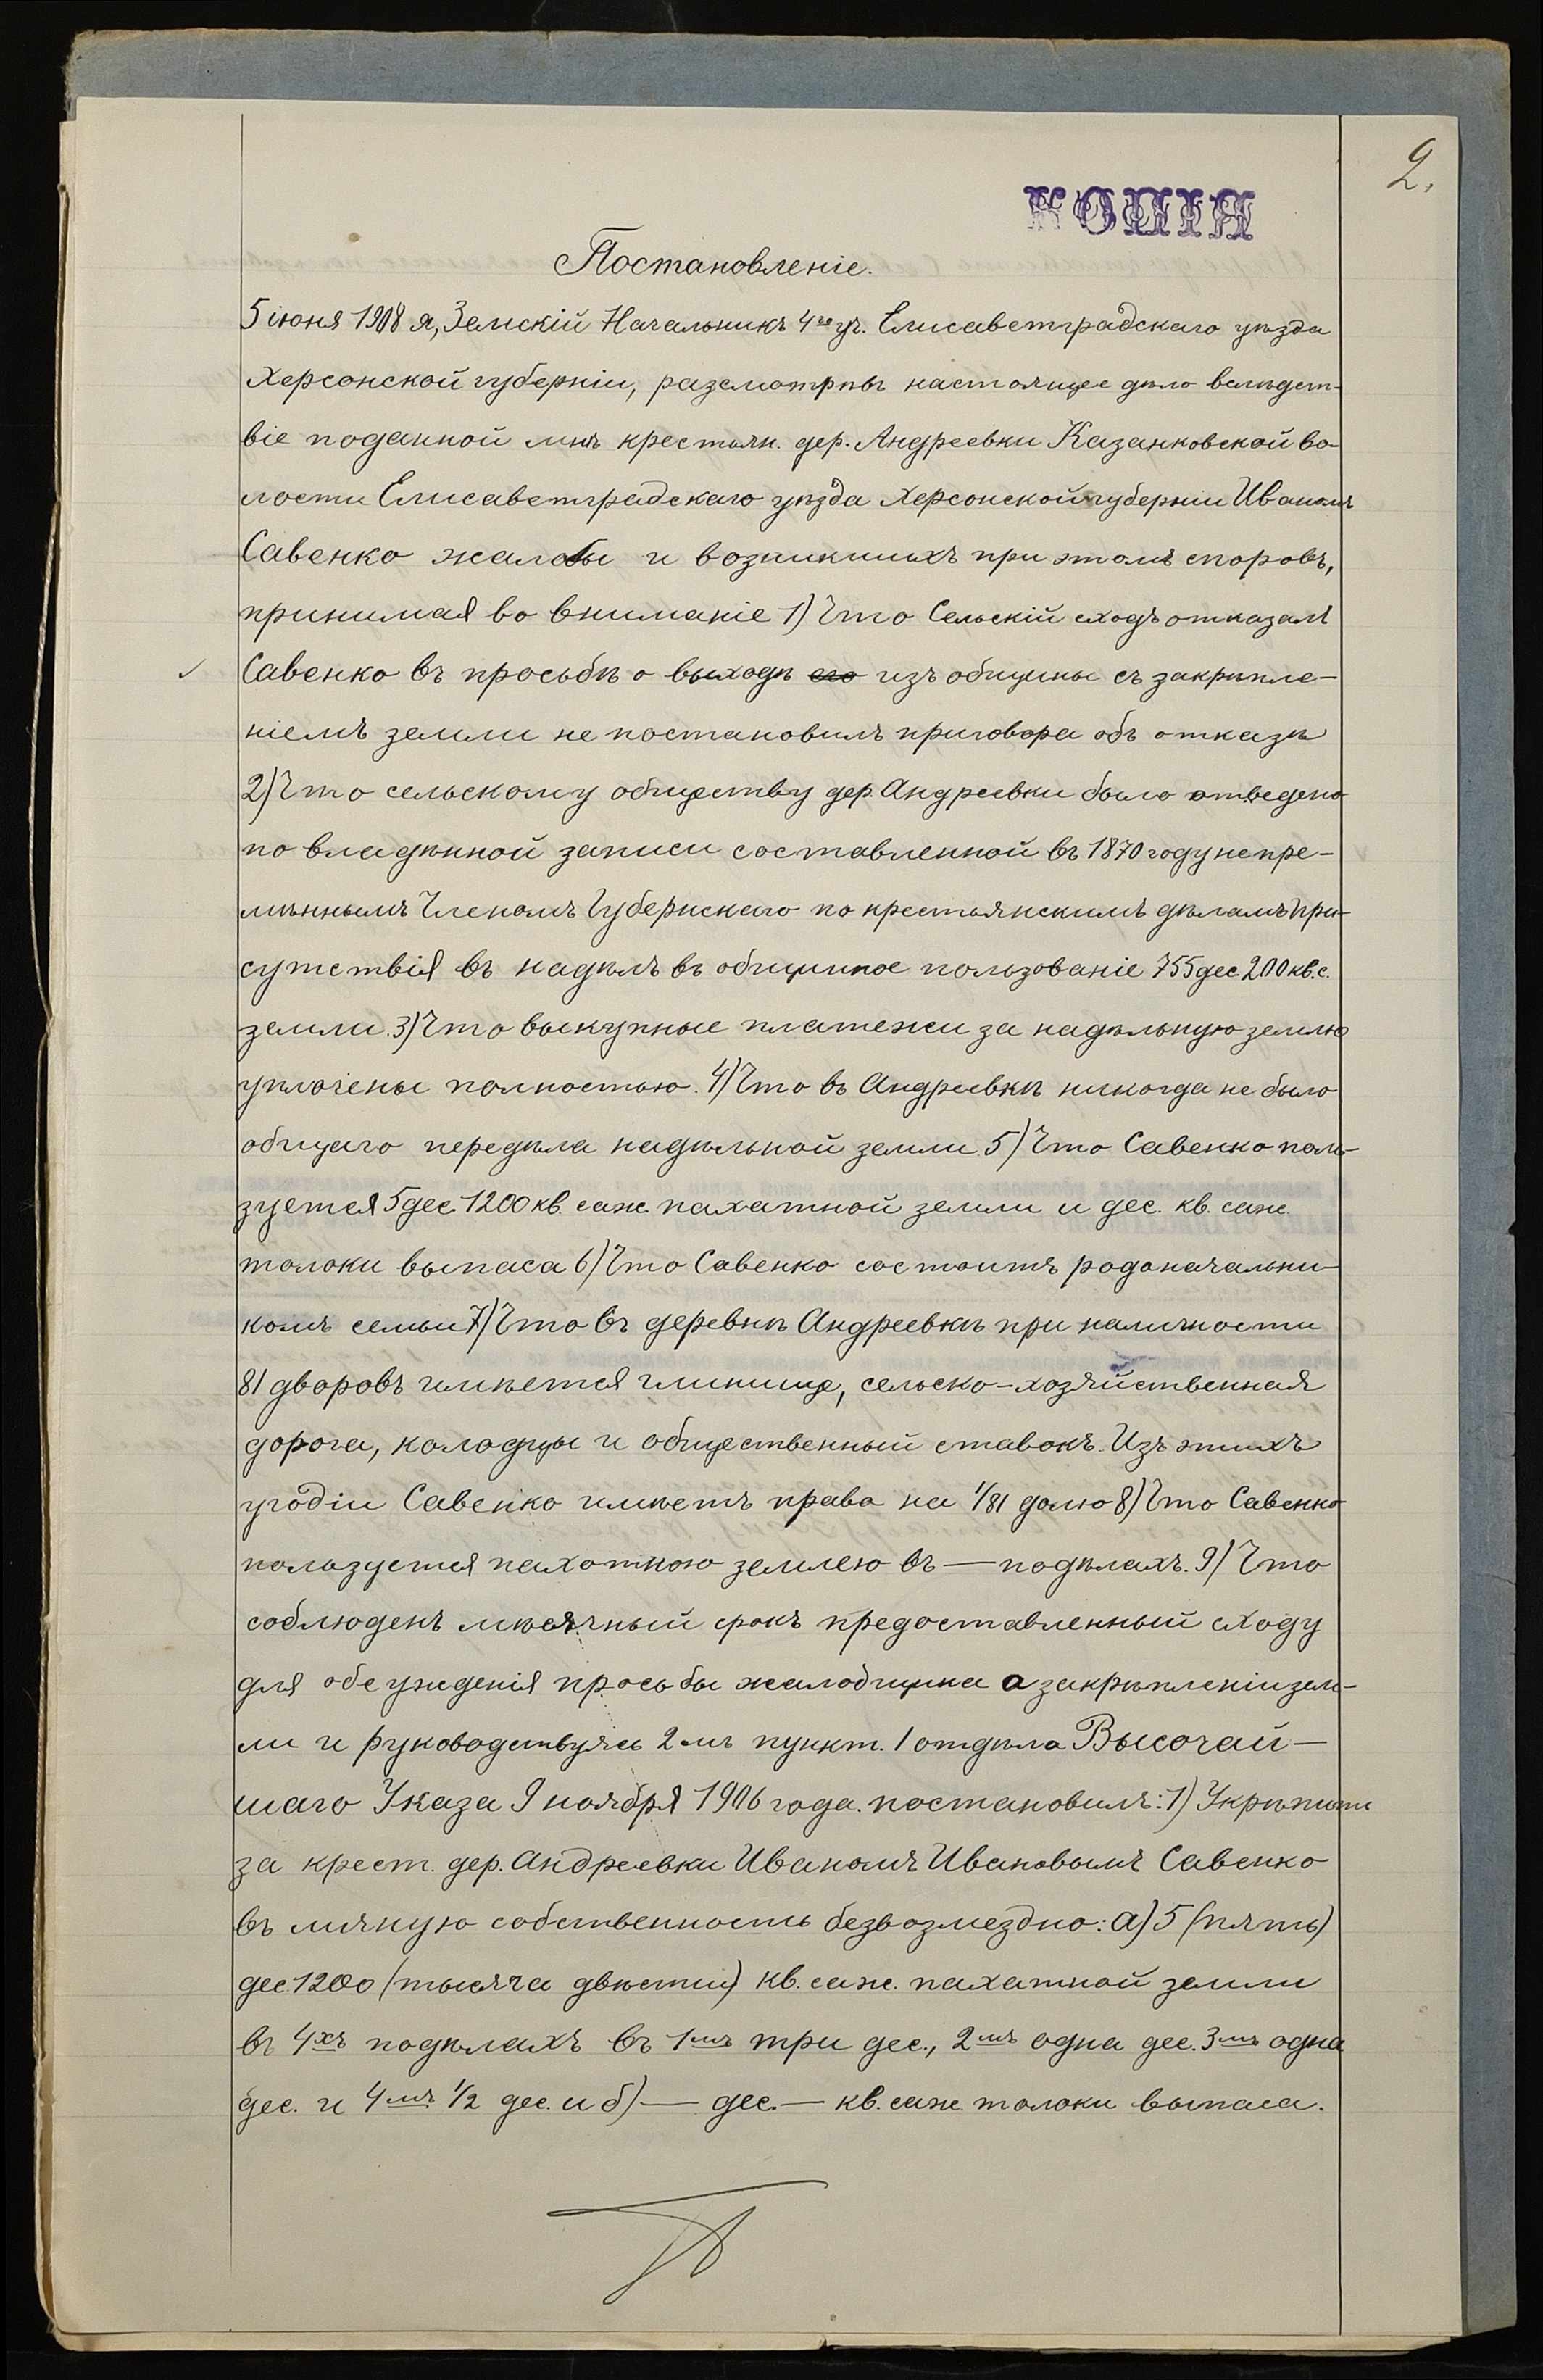 2.
КОПІЯ
Постановленіе.
5 іюня 1908 я, Земскій Начальникъ 4го уч. Елисаветградскаго уѣзда
Херсонской губерніи, разсмотрѣвъ настоящее дѣло вслѣдст-
віе поданной мнѣ крестьян. дер. Андреевки Казанковской во-
лости Елисаветградскаго уѣзда Херсонской губерніи Иваномъ
Савенко жалобы и возникшихъ при этомъ споровъ,
принимая во вниманіе 1) Что Сельскій сходъ отказалъ
Савенко въ просьбѣ о выходѣ его изъ общины съ закрѣпле-
ніемъ земли не постановилъ приговора объ отказѣ
2) Что сельскому обществу дер. Андреевки было отведено
по владѣнной записи составленной въ 1870 году непре-
мѣннымъ Членомъ Губернскаго по крестьянскимъ дѣламъ При-
сутствія въ надѣлъ въ общинное пользованіе 755 дес. 200 кв. с.
земли. 3) Что выкупные платежи за надѣльную землю
уплочены полностью. 4) Что въ Андреевкѣ никогда не было
общаго передѣла надѣльной земли 5) Что Савенко поль-
зуется 5 дес. 1200 кв. саж. пахатной земли и дес. кв. саж.
толоки выпаса 6) Что Савенко состоитъ родоначальни-
комъ семьи 7) Что въ деревнѣ Андреевкѣ при наличности
81 дворовъ имѣется глинище, сельско-хозяйственная
дорога, колодцы и общественный ставокъ. Изъ этихъ
угодіи Савенко имѣетъ право на 1/81 долю 8) Что Савенко
пользуется пахотною землею въ — подѣлахъ. 9) Что
соблюденъ мѣсячный срокъ предоставленный сходу
для обсужденія просьбы жалобщика о закрѣпленіи зем-
ли и руководствуясь 2мъ пункт. 1 отдѣла Высочай-
шаго Указа 9 ноября 1906 года. постановилъ: 1) Укрѣпить
за крест. дер. Андреевки Иваномъ Ивановымъ Савенко
въ личную собственность безвозмездно: а) 5 (пять)
дес. 1200 (тысяча двѣсти) кв. саж. пахатной земли
въ 4хъ подѣлахъ въ 1мъ три дес., 2мъ одна дес. 3мъ одна
дес. и 4мъ 1/2 дес. и б) — дес. — кв. саж. толоки выпаса.